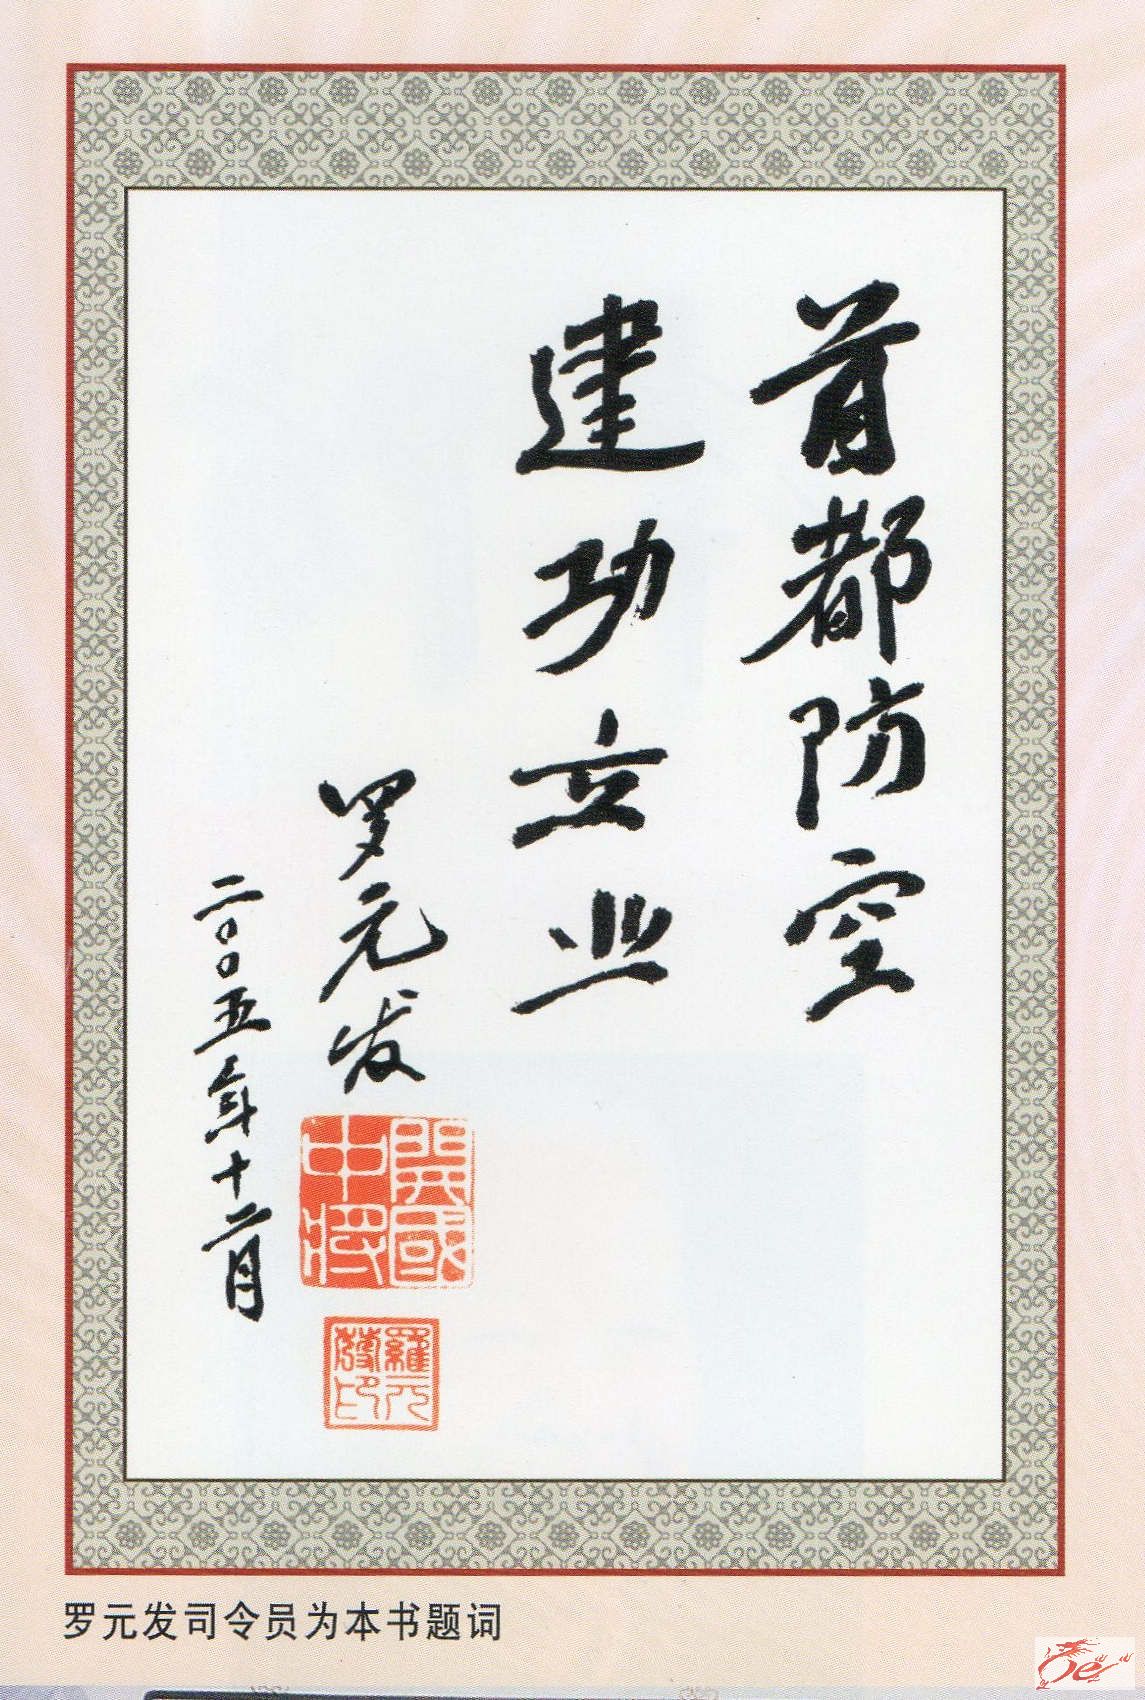 首都防空
建功立业
罗元发
二〇〇五年十二月
開國中將
羅元發印
罗元发司令员为本书题词